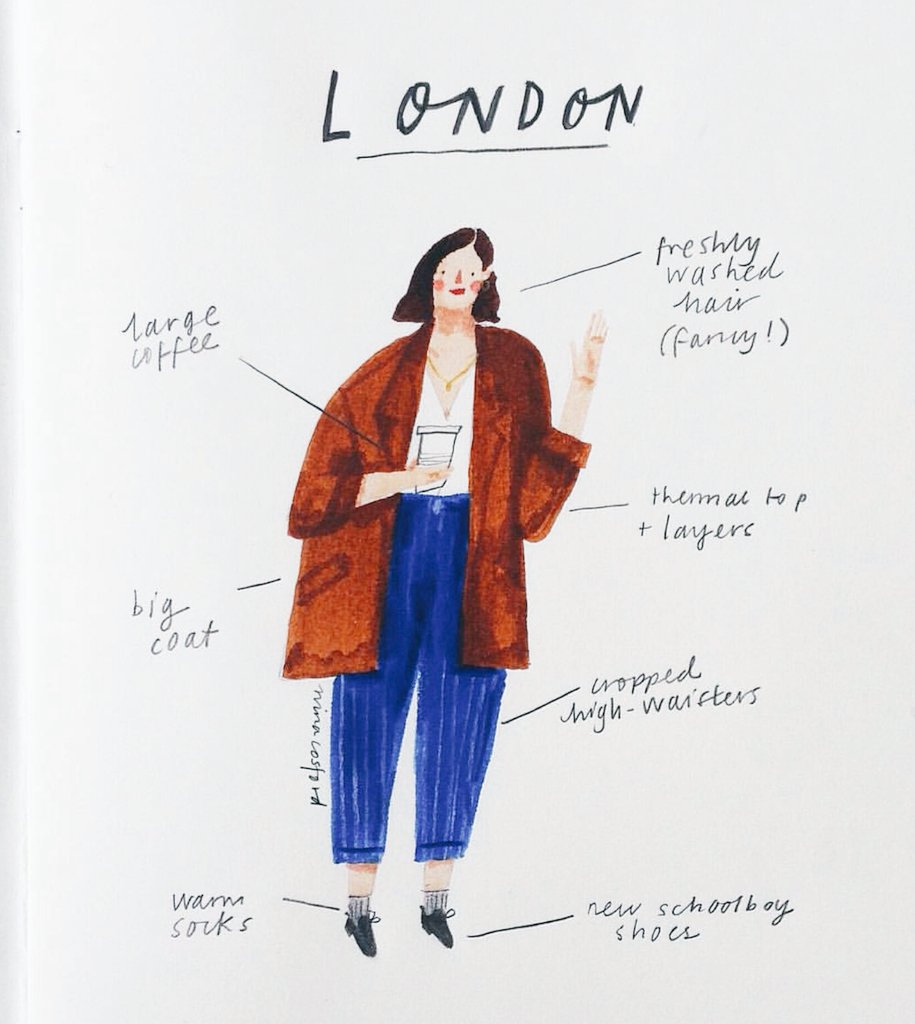 LONDON
freshly
washed
hair
(fancy!)
large
coffee
thermal top
+ layers
big
coat
cropped
high-waisters
ninacosford
warm
socks
new schoolboy
shoes